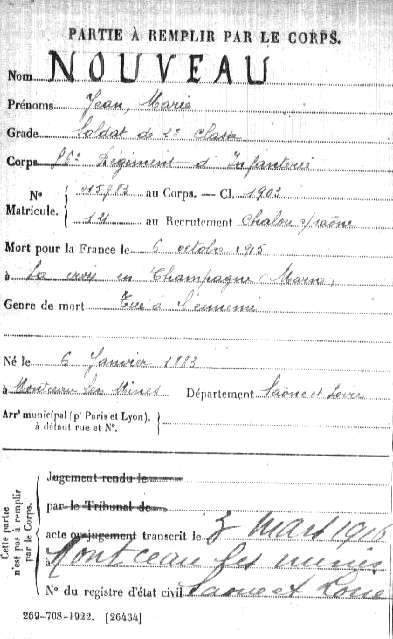 PARTIE À REMPLIR PAR LE CORPS.
Nom NOUVEAU
Prénoms Jean, Marie
Grade Soldat de 2e Classe
Corps Régiment d'Infanterie
No au Corps. — Cl. 1903
Matricule. au Recrutement Chalon s/saône
Mort pour la France le 6 octobre 1915
à La croix en Champagne (Marne)
Genre de mort Tué à l'ennemi
Né le 6 Janvier 1883
à Montceau les Mines Département Saône et Loire
Arrt municipal (pr Paris et Lyon),
à défaut rue et No.
Cette partie
n'est pas à remplir
par le Corps.
Jugement rendu le
par le Tribunal de
acte ou jugement transcrit le 3 mars 1916
à Montceau les mines
No du registre d'état civil Saone et Loire
269-708-1922. [26434]